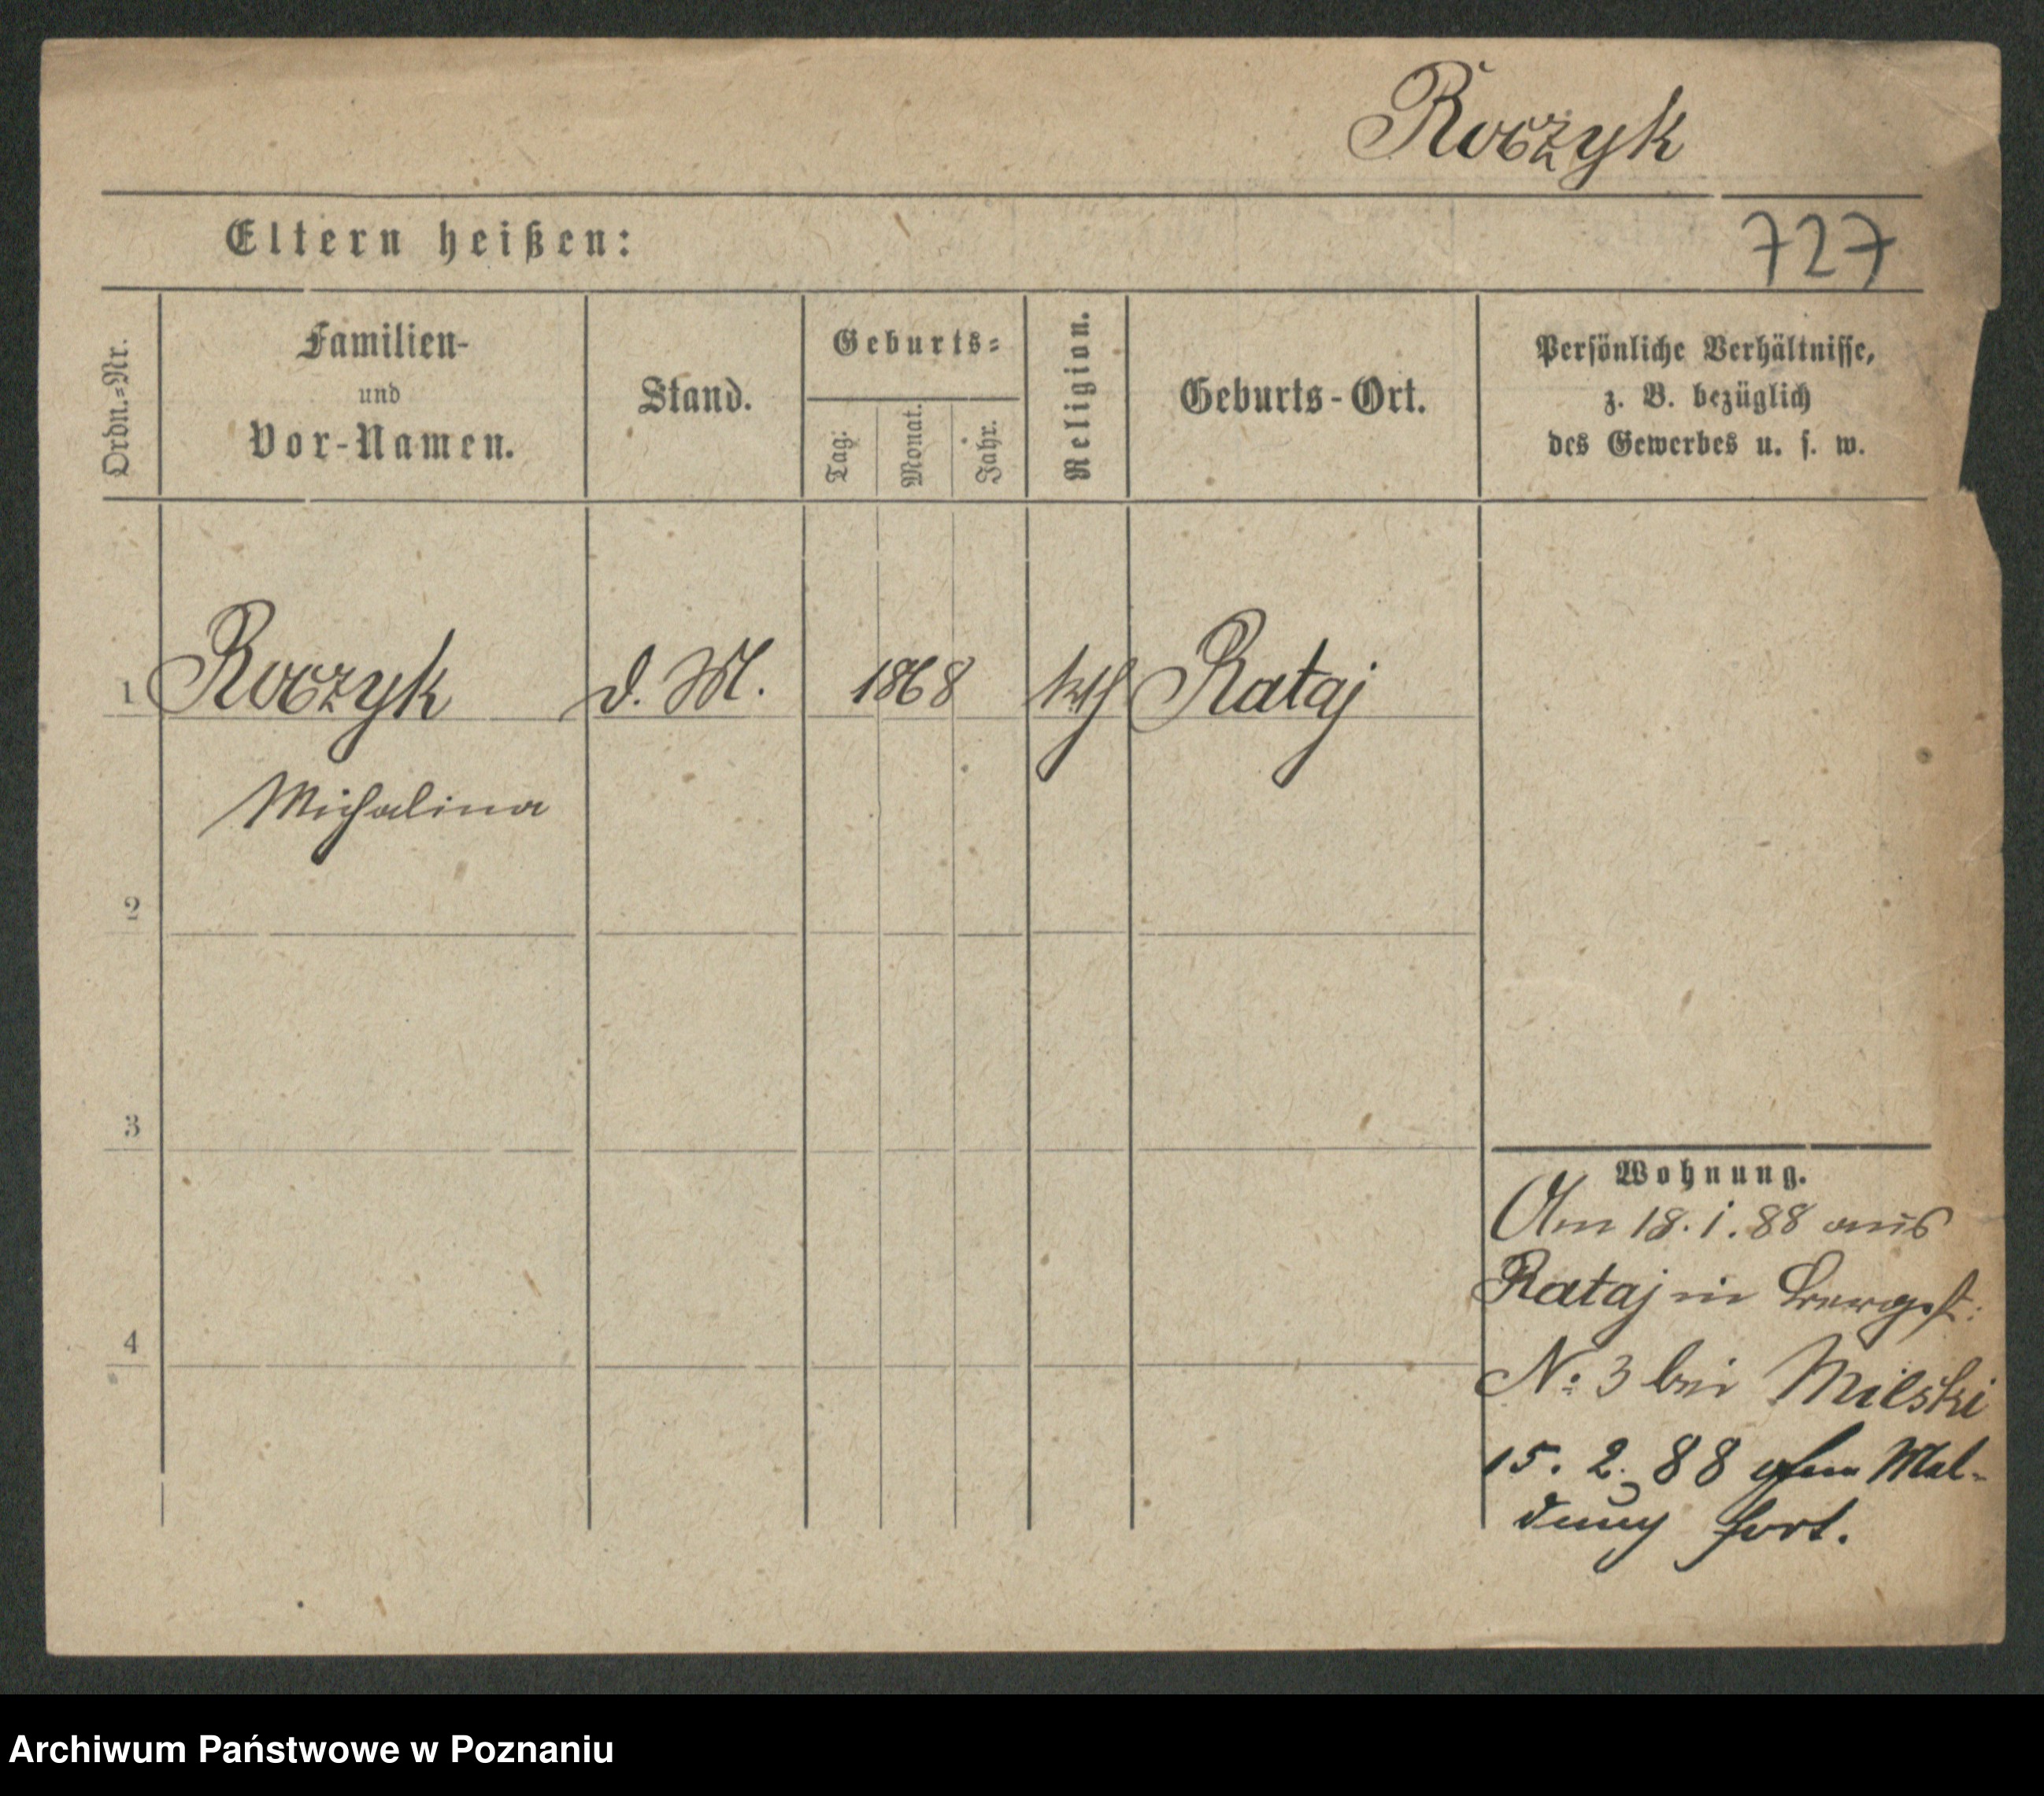 Roczyk
Eltern heißen:
727
Ordn.=Nr.
Familien-
und
Vor-Namen.
Stand.
Geburts=
Tag:
Monat.
Jahr.
Religion.
Geburts-Ort.
Persönliche Verhältnisse,
z. B. bezüglich
des Gewerbes u. s. w.
1 Roczyk d. M. 1868 kth Rataj
Michalina
2
3
4
Wohnung.
Am 18.1.88 aus
Rataj in
No: 3 bei Milski
15. 2. 88 ohne Mel-
dung fort.
Archiwum Państwowe w Poznaniu